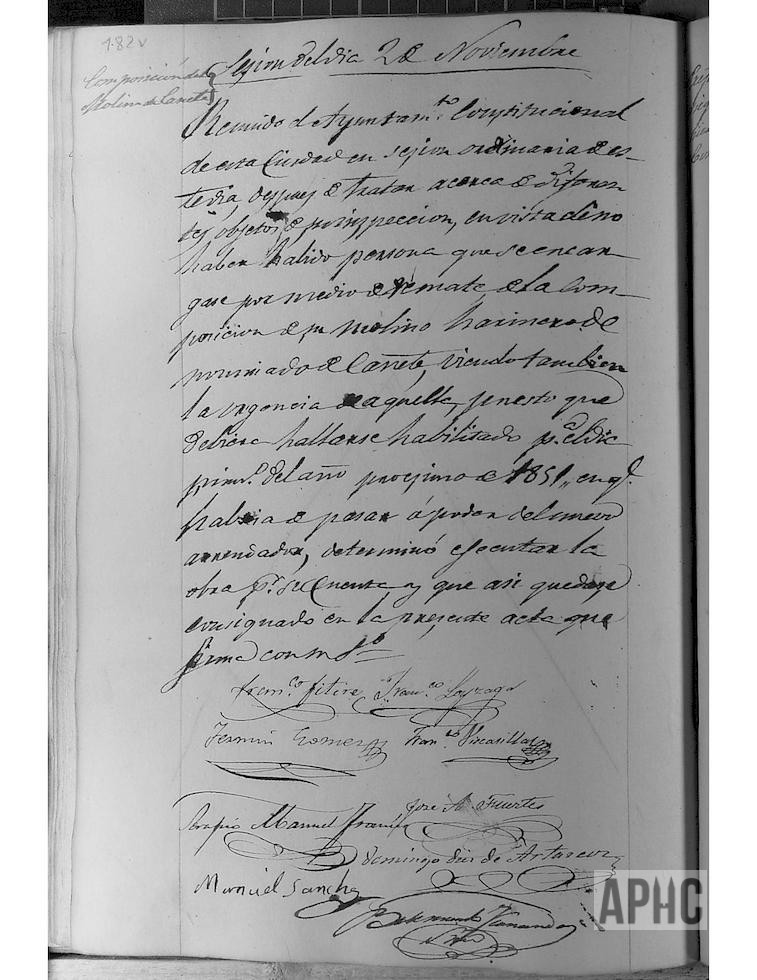 182v
Composición del
Molino de Cañete
Sesion del dia 2 de Noviembre
Reunido el Ayuntam.to Constitucional
de esta Ciudad en sesion ordinaria de es-
te dia, despues de tratar acerca de diferen-
tes objetos de su inspeccion, en vista de no
haber habido persona que se encar-
gase por medio de remate de la Com-
posicion de su molino harinero de
nominado de Cañete, viendo tambien
la urgencia de aquella, puesto que
debiera hallarse habilitado p.a el dia
prim.o del año procsimo de 1851, en q.e
habra de pasar á poder del nuevo
arrendador, determinó ejecutar la
obra p.r su Cuenta, y que asi quedase
consignado en la presente acta que
firma con mi el S.o
Fran.co Fitire Fran.co Loyzaga
Fermin Gomez Fran.co Vicasillas
Jose A. Fuertes
Serapio Manuel
Domingo Diez de
Manuel Sanchez
Fernando